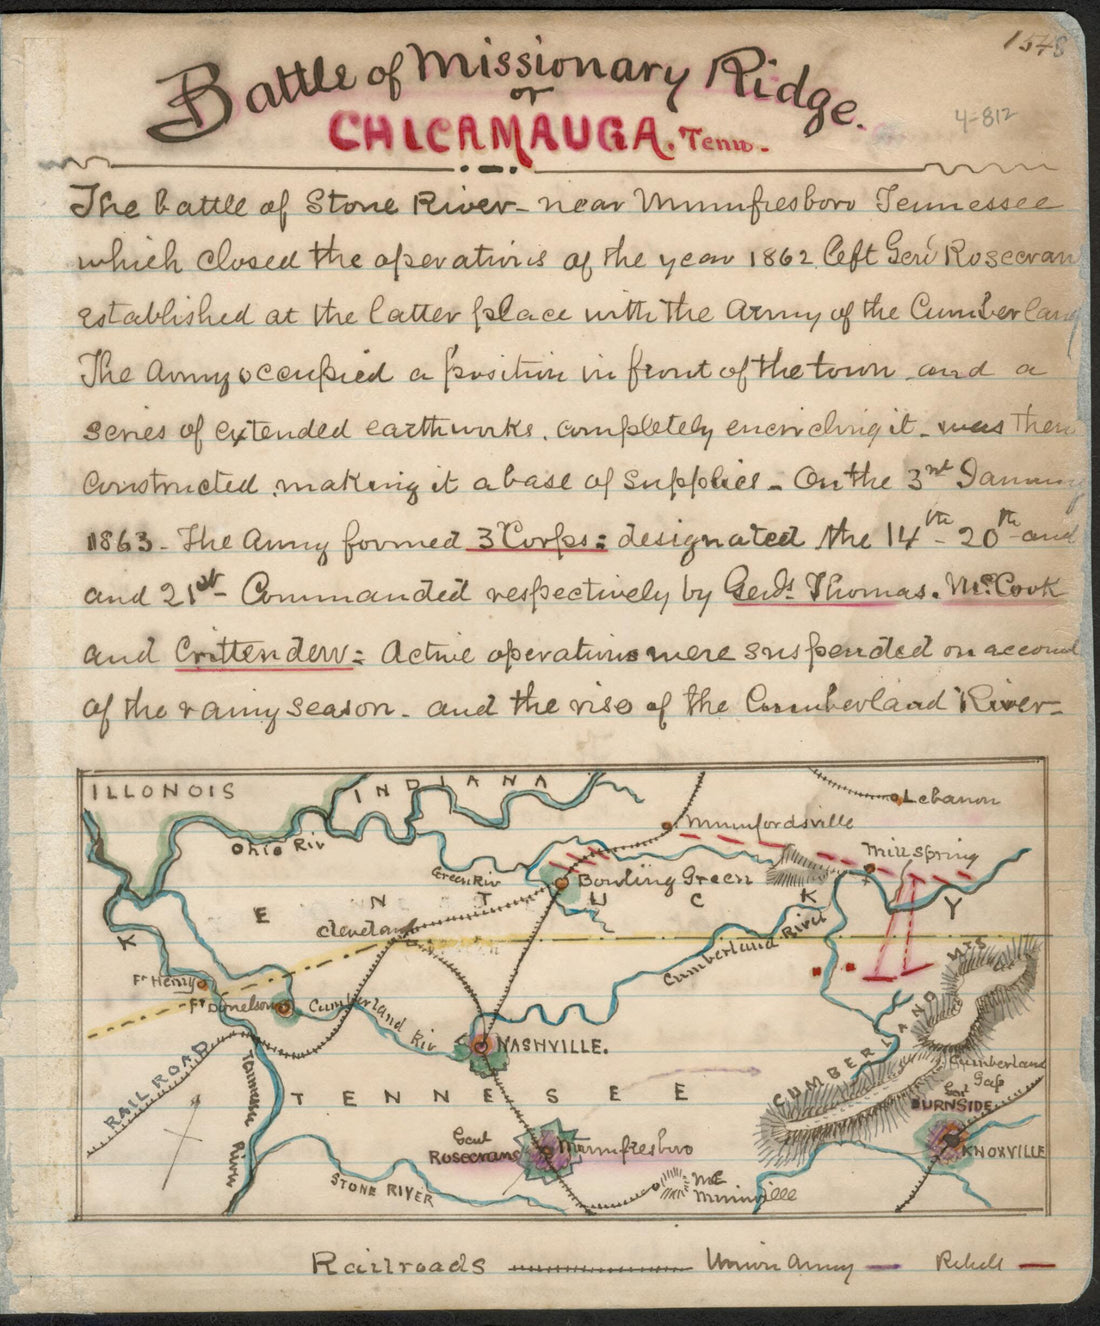 1548
Battle of Missionary Ridge.
or
CHICAMAUGA. Tenn.
4-812
The Battle of Stone River - near Murmfresboro Tennessee
which closed the operations of the year 1862 left Genl Rosecran
established at the latter place with the Army of the Cumberland
The Army occupied a position in front of the town and a
series of extended earthworks. completely encircling it - was then
constructed, making it a base of supplies - On the 3rd January
1863 - The Army formed 3 Corps: designated the 14th - 20th - and
and 21st - Commanded respectively by Genls. Thomas. McCook
and Crittenden: Active operations were suspended on account
of the rainy season - and the rise of the Cumberland River -
ILLONOIS
INDIANA
Lebanon
Munfordsville
Ohio Riv
Mill Spring
Green Riv
Bowling Green
KENTUCKY
Cleveland
Cumberland River
Ft Henry
Ft Donelson
Cumberland Riv
NASHVILLE.
CUMBERLAND MTS
RAILROAD
Tennessee River
Cumberland Gap
TENNESEE
Genl BURNSIDE
KNOXVILLE
Genl Rosecrans
Murmfresboro
STONE RIVER
Mc Minnville
Railroads
Union Army
Rebels